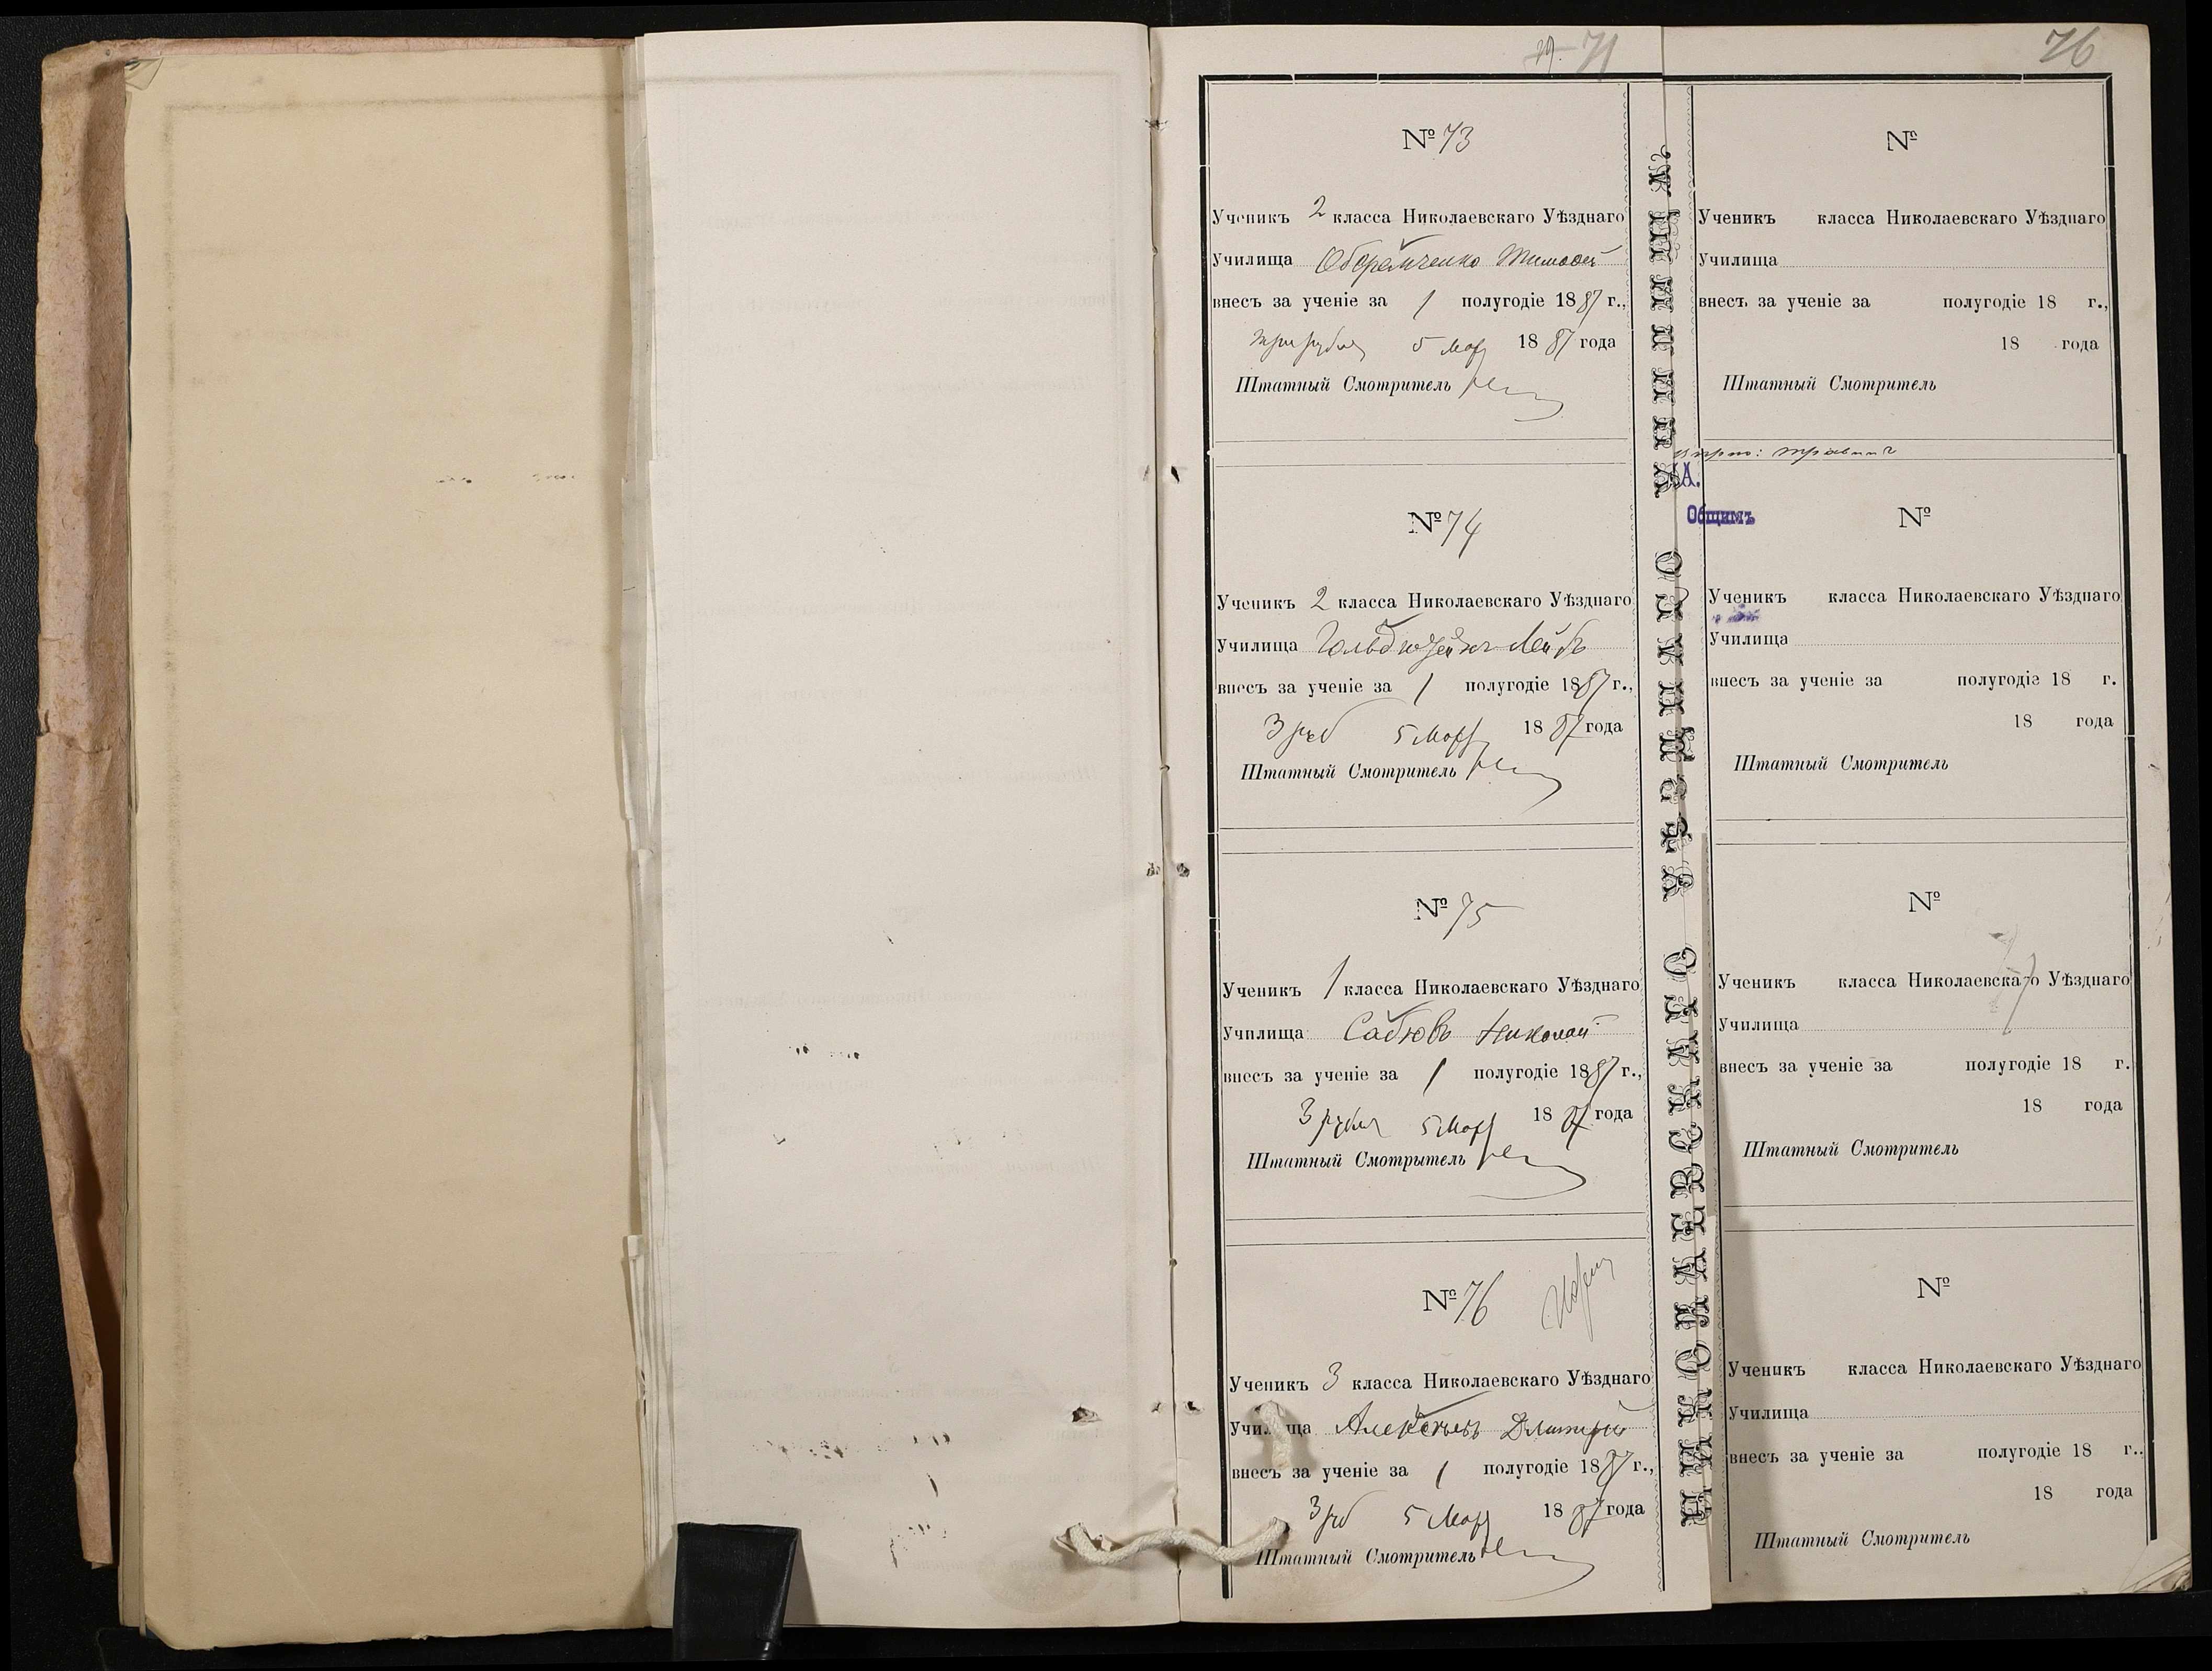 71
76
№ 73
Ученикъ 2 класса Николаевскаго Уѣзднаго
Училища
внесъ за ученіе за 1 полугодіе 1887 г.,
три рубля 5 Мар 1887 года
Штатный Смотритель
№ 74
Ученикъ 2 класса Николаевскаго Уѣзднаго
Училища Лейб
внесъ за ученіе за 1 полугодіе 1887 г.,
3 руб 5 Мар 1887 года
Штатный Смотритель
№ 75
Ученикъ 1 класса Николаевскаго Уѣзднаго
Училища Николай
внесъ за ученіе за 1 полугодіе 1887 г.,
3 рубля 5 Мар 1887 года
Штатный Смотрытель
№ 76
Ученикъ 3 класса Николаевскаго Уѣзднаго
Училища Алексѣевъ Дмитрій
внесъ за ученіе за 1 полугодіе 1887 г.,
3 руб 5 Мар 1887 года
Штатный Смотритель
НИКОЛАЕВСКАГО УѢЗДНАГО УЧИЛИЩА
№
Ученикъ класса Николаевскаго Уѣзднаго
Училища
внесъ за ученіе за полугодіе 18 г.,
18 года
Штатный Смотритель
А.
Общимъ
№
Ученикъ класса Николаевскаго Уѣзднаго
Училища
внесъ за ученіе за полугодіе 18 г.
18 года
Штатный Смотритель
№
Ученикъ класса Николаевскаго Уѣзднаго
Училища
внесъ за ученіе за полугодіе 18 г.
18 года
Штатный Смотритель
№
Ученикъ класса Николаевскаго Уѣзднаго
Училища
внесъ за ученіе за полугодіе 18 г..
18 года
Штатный Смотритель